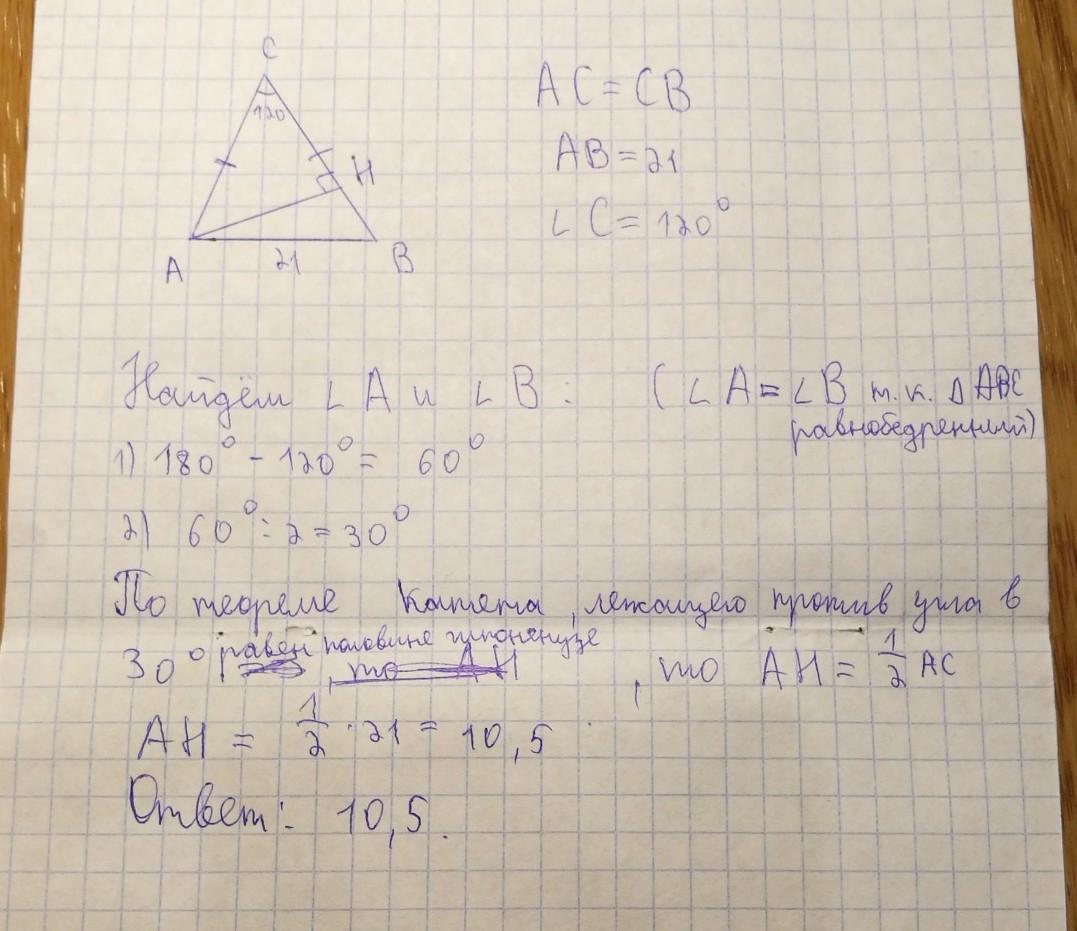 C
120
H
A
21
B
AC = CB
AB = 21
∠C = 120°
Найдём ∠A и ∠B : (∠A = ∠B т.к. △ABC
равнобедренний)
1) 180° - 120° = 60°
2) 60° : 2 = 30°
По теореме Катета, лежащего против угла в
30° равен половине гипоненузе, то AH = 1/2 AC
AH = 1/2 · 21 = 10,5
Ответ: 10,5.